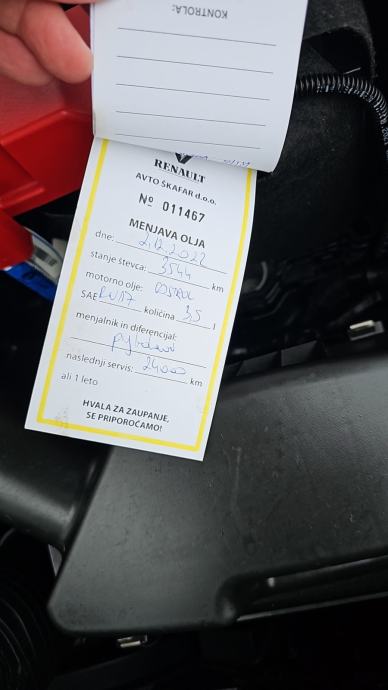 KONTROLA:
RENAULT
AVTO ŠKAFAR d.o.o.
№ 011467
MENJAVA OLJA
dne: 2.12.2022
stanje števca: 3544 km
motorno olje:
SAE RN17 količina 3,5 l
menjalnik in diferencijal:
naslednji servis: 24000 km
ali 1 leto
HVALA ZA ZAUPANJE,
SE PRIPOROČAMO!